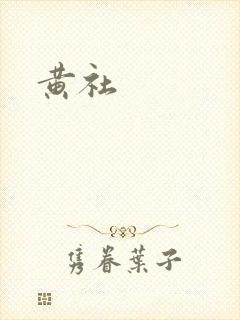 黄社
隽眷葉子